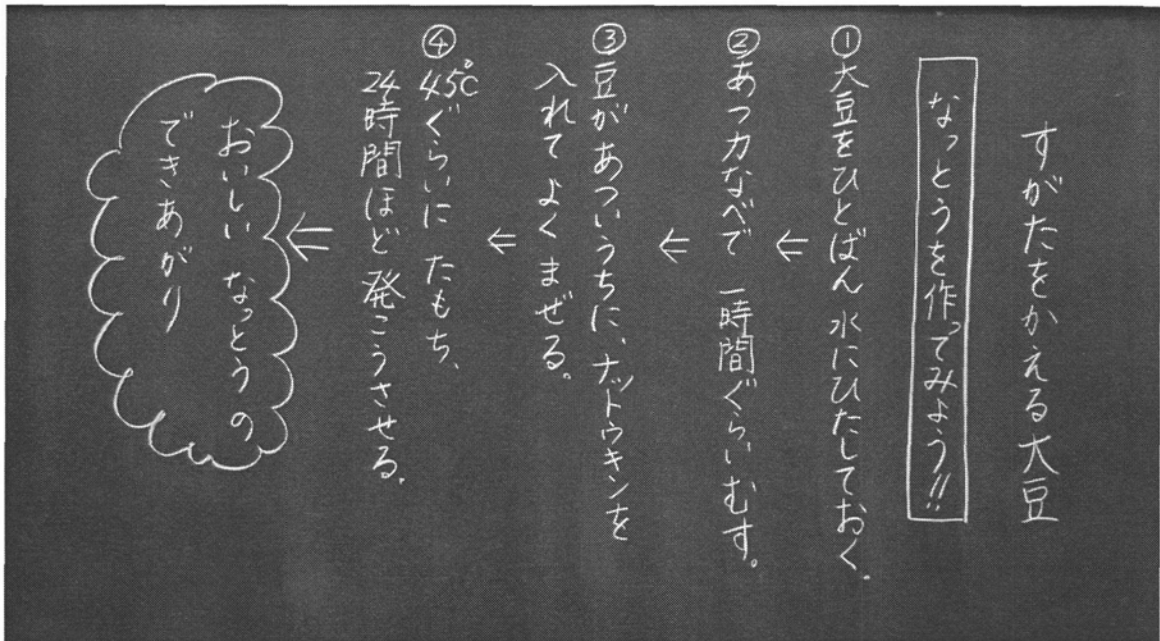 すがたをかえる大豆
なっとうを作ってみよう!!
①大豆をひとばん水にひたしておく。
②あつ力なべで一時間ぐらいむす。
③豆があついうちに、ナットウキンを
入れてよくまぜる。
④45℃ぐらいにたもち、
24時間ほど発こうさせる。
おいしいなっとうの
できあがり